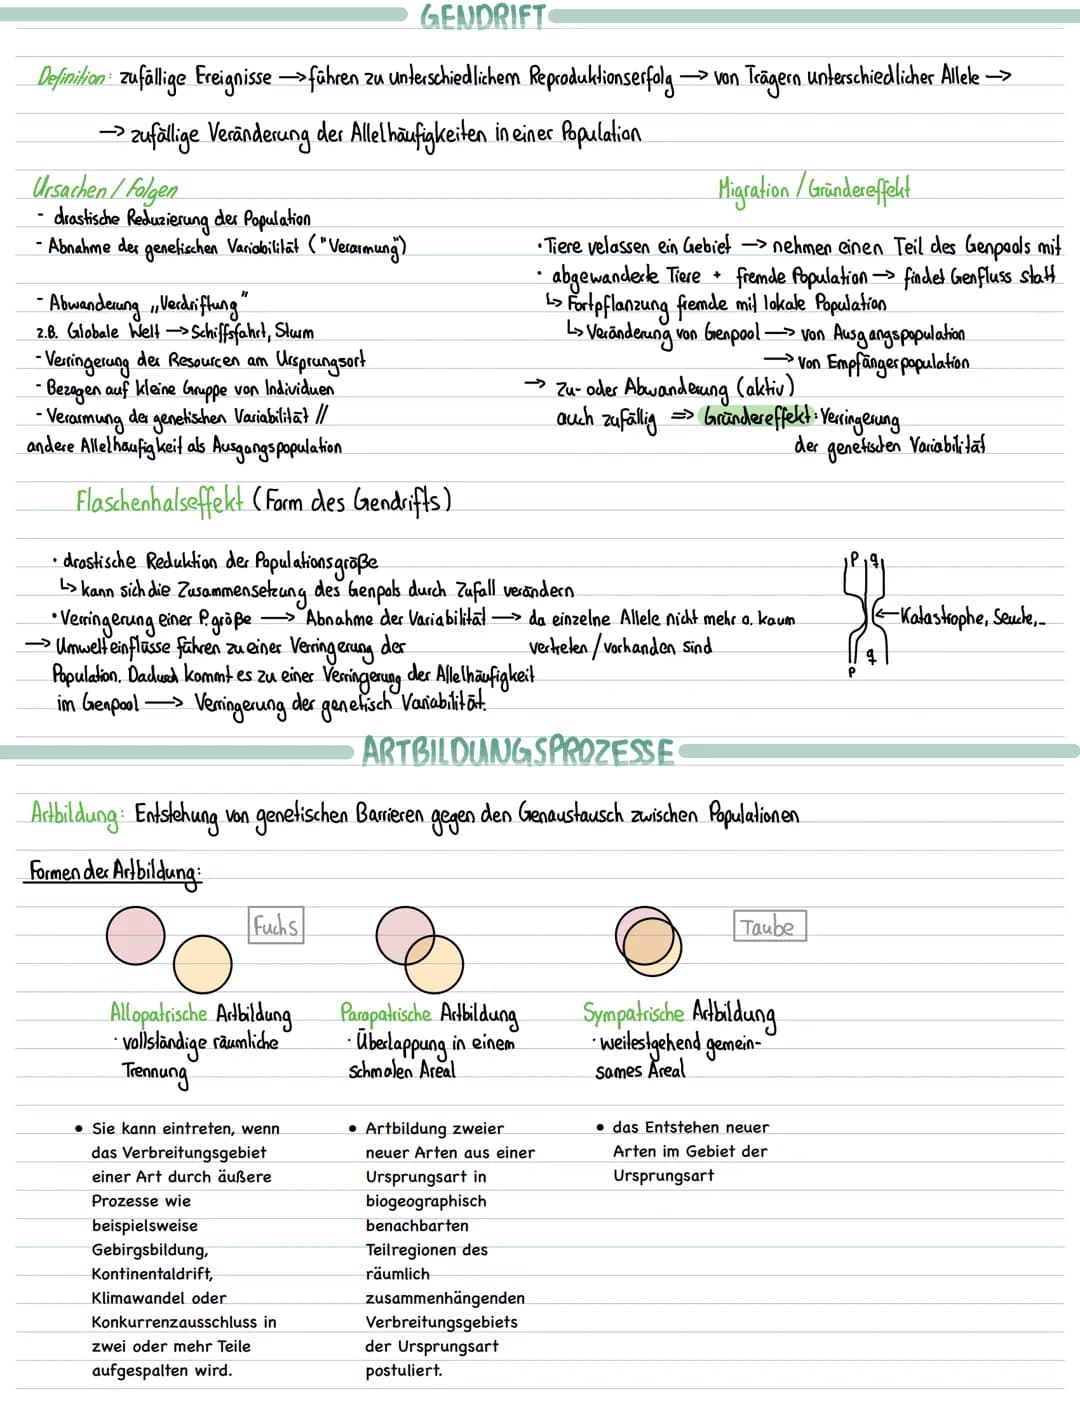 GENDRIFT
Definition: zufällige Ereignisse → führen zu unterschiedlichem Reproduktionserfolg → von Trägern unterschiedlicher Allele →
→ zufällige Veränderung der Allelhäufigkeiten in einer Population
Ursachen / Folgen
- drastische Reduzierung der Population
- Abnahme der genetischen Variabilität ("Verarmung")
- Abwanderung „Verdriftung"
z.B. Globale Welt → Schiffsfahrt, Sturm
- Verringerung der Resourcen am Ursprungsort
- Bezogen auf kleine Gruppe von Individuen
- Verarmung der genetischen Variabilität //
andere Allelhäufigkeit als Ausgangspopulation
Migration / Gründereffekt
• Tiere velassen ein Gebiet → nehmen einen Teil des Genpools mit
• abgewanderte Tiere + fremde Population → findet Genfluss statt
↳ Fortpflanzung fremde mit lokale Population
↳ Veränderung von Genpool → von Ausgangspopulation
→ von Empfängerpopulation
→ Zu- oder Abwanderung (aktiv)
auch zufällig ⇒ Gründereffekt: Verringerung
der genetischen Variabilität
Flaschenhalseffekt (Form des Gendrifts)
• drastische Reduktion der Populationsgröße
↳ kann sich die Zusammensetzung des Genpols durch Zufall verändern
• Verringerung einer P.größe → Abnahme der Variabilität → da einzelne Allele nicht mehr o. kaum
vertreten / vorhanden sind
→ Umwelteinflüsse führen zu einer Verringerung der
Population. Dadurch kommt es zu einer Verringerung der Allelhäufigkeit
im Genpool → Verringerung der genetisch Variabilität.
P q
← Katastrophe, Seuche,..
q
P
ARTBILDUNGSPROZESSE
Artbildung: Entstehung von genetischen Barrieren gegen den Genaustausch zwischen Populationen
Formen der Artbildung:
Fuchs
Taube
Allopatrische Artbildung
• vollständige räumliche
Trennung
• Sie kann eintreten, wenn
das Verbreitungsgebiet
einer Art durch äußere
Prozesse wie
beispielsweise
Gebirgsbildung,
Kontinentaldrift,
Klimawandel oder
Konkurrenzausschluss in
zwei oder mehr Teile
aufgespalten wird.
Parapatrische Artbildung
• Überlappung in einem
schmalen Areal
• Artbildung zweier
neuer Arten aus einer
Ursprungsart in
biogeographisch
benachbarten
Teilregionen des
räumlich
zusammenhängenden
Verbreitungsgebiets
der Ursprungsart
postuliert.
Sympatrische Artbildung
• weitestgehend gemein-
sames Areal
• das Entstehen neuer
Arten im Gebiet der
Ursprungsart